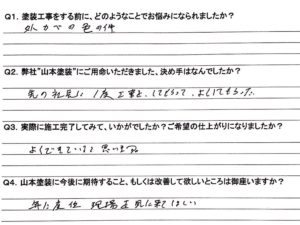 Q1. 塗装工事をする前に、どのようなことでお悩みになられましたか？
外かべの色の件
Q2. 弊社"山本塗装"にご用命いただきました、決め手はなんでしたか？
先の社長に1度工事をしてもらって、よくしてもらった
Q3. 実際に施工完了してみて、いかがでしたか？ご希望の仕上がりになりましたか？
よくできていると思います。
Q4. 山本塗装に今後に期待すること、もしくは改善して欲しいところは御座いますか？
年に1度位 現場を見に来てほしい